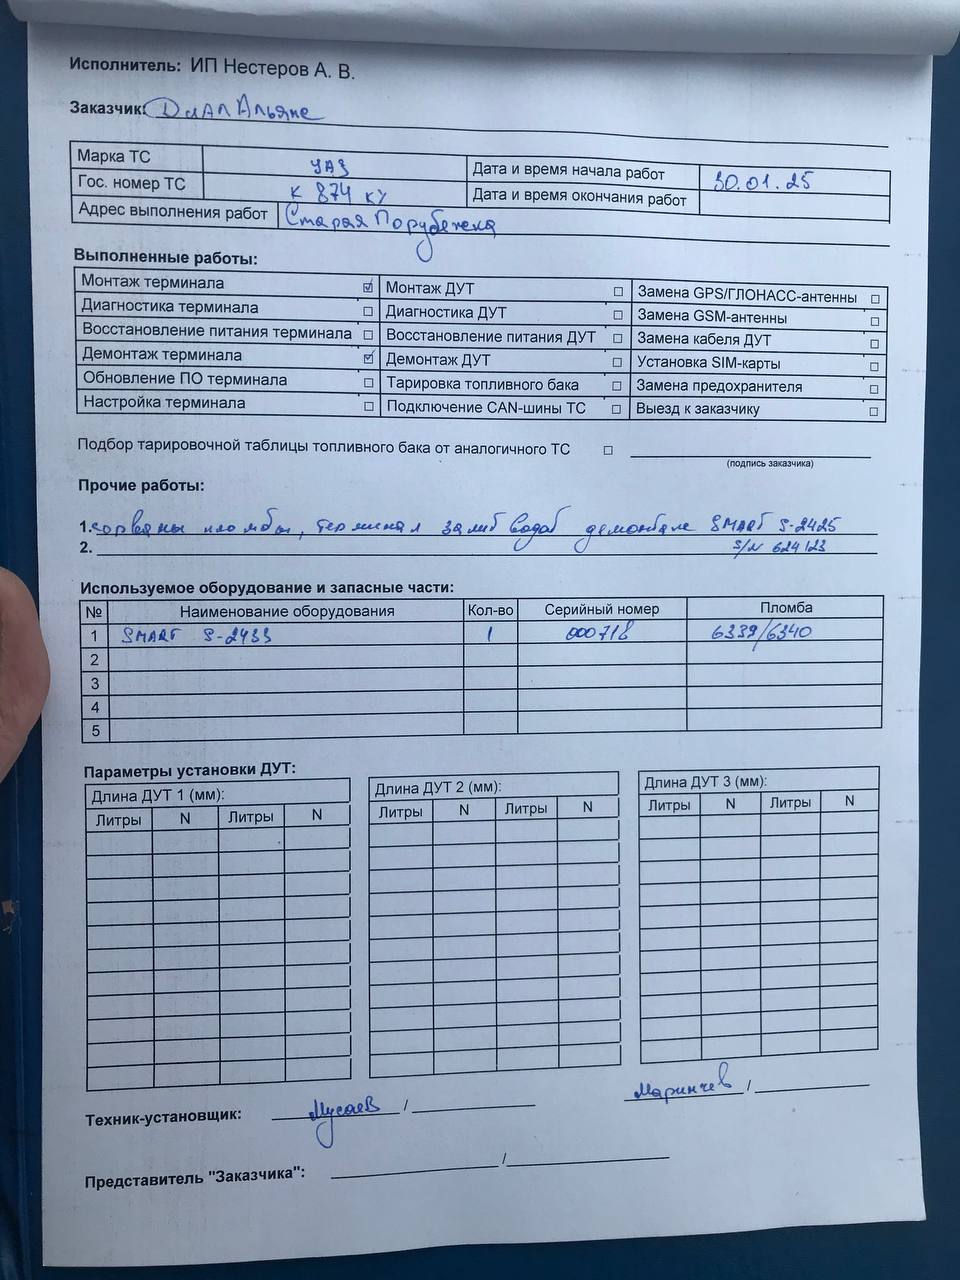 Исполнитель: ИП Нестеров А. В.
Заказчик: ДиалАльянс
Марка ТС УАЗ Дата и время начала работ 30.01.25
Гос. номер ТС К 874 КУ Дата и время окончания работ
Адрес выполнения работ Старая Порубежка
Выполненные работы:
Монтаж терминала ☑ Монтаж ДУТ ☐ Замена GPS/ГЛОНАСС-антенны ☐
Диагностика терминала ☐ Диагностика ДУТ ☐ Замена GSM-антенны ☐
Восстановление питания терминала ☐ Восстановление питания ДУТ ☐ Замена кабеля ДУТ ☐
Демонтаж терминала ☑ Демонтаж ДУТ ☐ Установка SIM-карты ☐
Обновление ПО терминала ☐ Тарировка топливного бака ☐ Замена предохранителя ☐
Настройка терминала ☐ Подключение CAN-шины ТС ☐ Выезд к заказчику ☐
Подбор тарировочной таблицы топливного бака от аналогичного ТС ☐
(подпись заказчика)
Прочие работы:
1. сорваны пломбы, терминал залит водой демонтаж SMART S-2425
2. S/N 624123
Используемое оборудование и запасные части:
№ Наименование оборудования Кол-во Серийный номер Пломба
1 SMART S-2433 1 000718 6339/6340
2
3
4
5
Параметры установки ДУТ:
Длина ДУТ 1 (мм): Длина ДУТ 2 (мм): Длина ДУТ 3 (мм):
Литры N Литры N Литры N Литры N Литры N Литры N
Техник-установщик: Мусаев / Маринчев /
Представитель "Заказчика": /